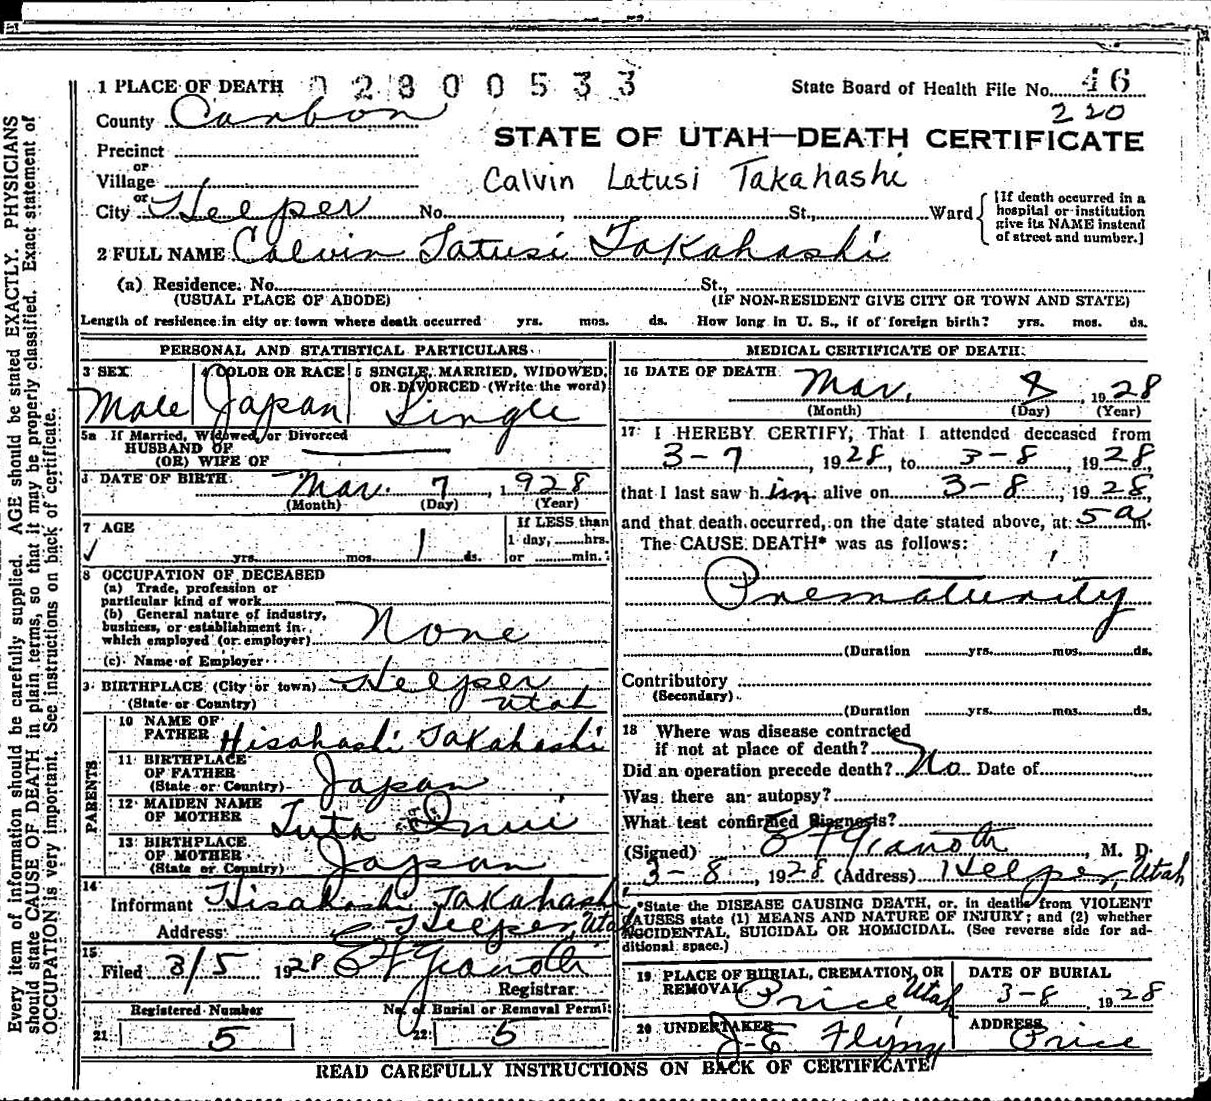 1 PLACE OF DEATH 02800533 State Board of Health File No. 46
County Carbon 220
STATE OF UTAH—DEATH CERTIFICATE
Precinct
or
Village Calvin Latusi Takahashi
or
City Helper No. , St., Ward [If death occurred in a hospital or institution give its NAME instead of street and number.]
2 FULL NAME Calvin Tatusi Takahashi
(a) Residence. No. St.,
(USUAL PLACE OF ABODE) (IF NON-RESIDENT GIVE CITY OR TOWN AND STATE)
Length of residence in city or town where death occurred yrs. mos. ds. How long in U. S., if of foreign birth? yrs. mos. ds.
PERSONAL AND STATISTICAL PARTICULARS
3 SEX 4 COLOR OR RACE 5 SINGLE, MARRIED, WIDOWED, OR DIVORCED (Write the word)
Male Japan Single
5a If Married, Widowed, or Divorced
HUSBAND OF
(OR) WIFE OF
DATE OF BIRTH Mar. 7, 1928
(Month) (Day) (Year)
7 AGE If LESS than
1 day, hrs.
yrs. mos. 1 ds. or min.
8 OCCUPATION OF DECEASED
(a) Trade, profession or
particular kind of work
(b) General nature of industry,
business, or establishment in
which employed (or employer) None
(c) Name of Employer
9 BIRTHPLACE (City or town) Helper
(State or Country) Utah
PARENTS
10 NAME OF
FATHER Hisahashi Takahashi
11 BIRTHPLACE
OF FATHER
(State or Country) Japan
12 MAIDEN NAME
OF MOTHER Tuta Inui
13 BIRTHPLACE
OF MOTHER
(State or Country) Japan
14
Informant Hisahashi Takahashi
Address Helper, Utah
15
Filed 3/5 1928 E F Gianotti
Registrar.
Registered Number No. of Burial or Removal Permit
21 5 22 5
MEDICAL CERTIFICATE OF DEATH
16 DATE OF DEATH Mar. 8, 1928
(Month) (Day) (Year)
17 I HEREBY CERTIFY, That I attended deceased from
3-7, 1928, to 3-8, 1928,
that I last saw him alive on 3-8, 1928,
and that death occurred, on the date stated above, at 5 a m.
The CAUSE DEATH* was as follows:
Prematurity
(Duration yrs. mos. ds.
Contributory
(Secondary)
(Duration yrs. mos. ds.
18 Where was disease contracted
if not at place of death?
Did an operation precede death? No Date of
Was there an autopsy?
What test confirmed diagnosis?
(Signed) E F Gianotti, M. D.
3-8, 1928 (Address) Helper, Utah
*State the DISEASE CAUSING DEATH, or, in deaths from VIOLENT
CAUSES state (1) MEANS AND NATURE OF INJURY; and (2) whether
ACCIDENTAL, SUICIDAL OR HOMICIDAL. (See reverse side for ad-
ditional space.)
19 PLACE OF BURIAL, CREMATION, OR DATE OF BURIAL
REMOVAL Price Utah 3-8, 1928
20 UNDERTAKER ADDRESS
J-E Flynn Price
READ CAREFULLY INSTRUCTIONS ON BACK OF CERTIFICATE
Every item of information should be carefully supplied. AGE should be stated EXACTLY. PHYSICIANS
should state CAUSE OF DEATH in plain terms, so that it may be properly classified. Exact statement of
OCCUPATION is very important. See instructions on back of certificate.